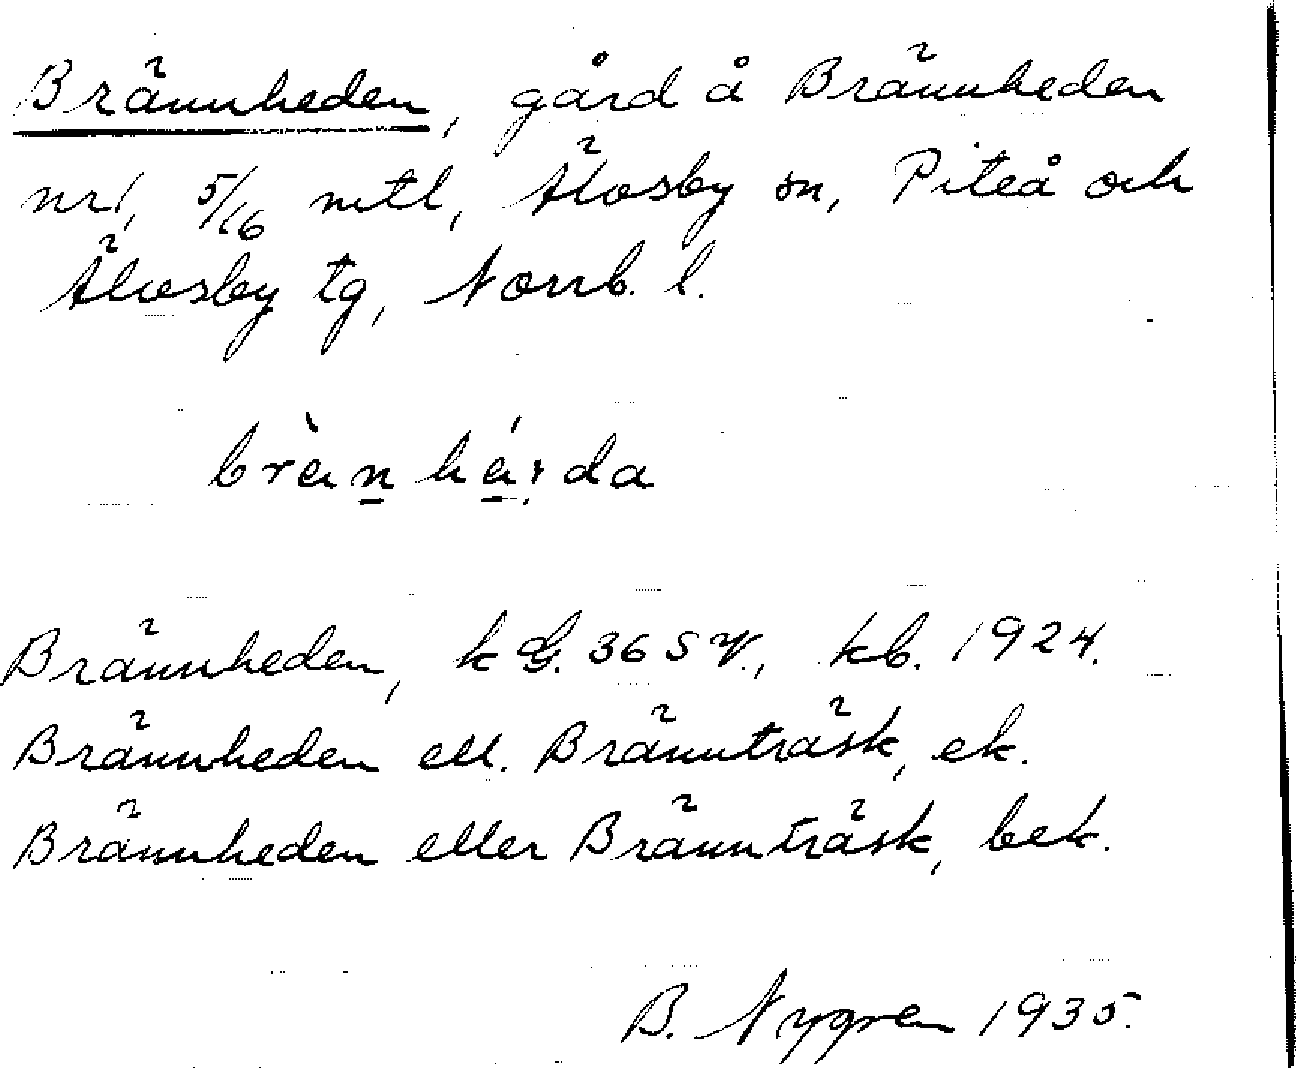 Brännheden, gård å Brännheden
nr 1, 5/16 mtl, Älvsby sn, Piteå och
Älvsby tg, Norrb. l.
Brännheden, k G. 36 S V., kb. 1924.
Brännheden ell. Brännträsk, ek.
Brännheden eller Brännträsk, bek.
B. Nygren 1935.